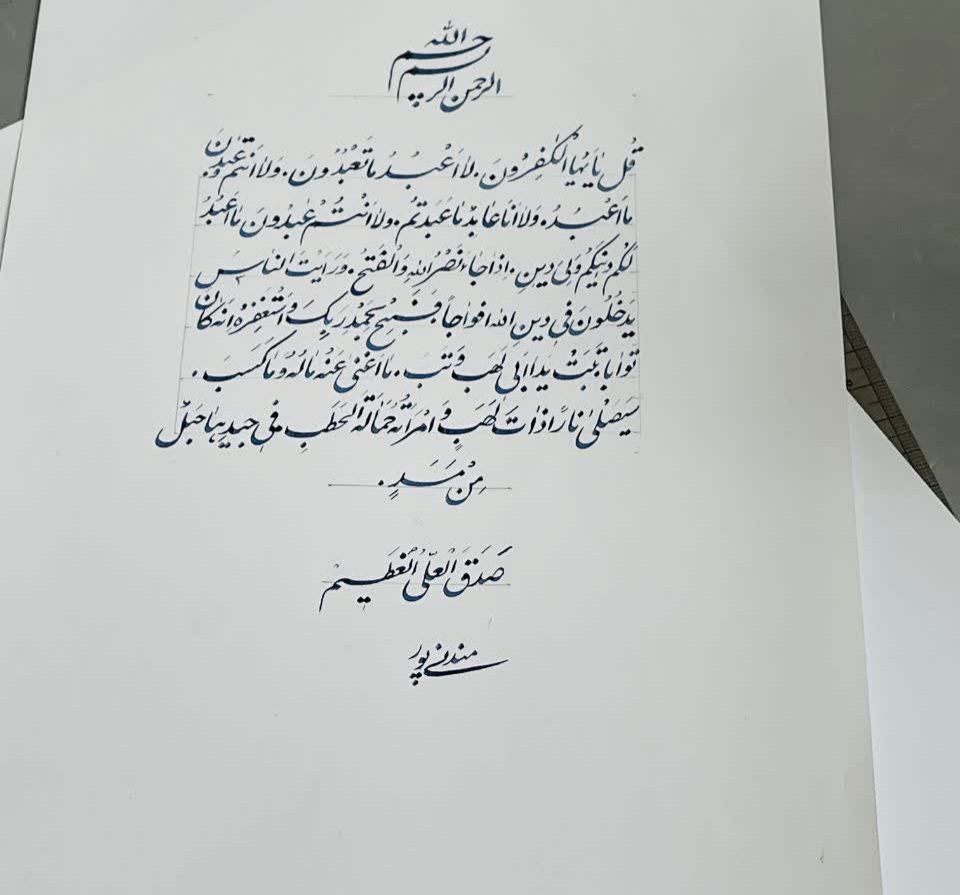 بسم الله الرحمن الرحیم
قُل یٰاَیُّهَا الْکٰفِرُونَ. لٰا اَعْبُدُ مٰا تَعْبُدُونَ. وَلٰا اَنتُم عٰبِدُونَ
مٰا اَعْبُدُ. وَلٰا اَنَا عٰابِدٌ مٰا عَبَدتُم. وَلٰا اَنْتُمْ عٰبِدُونَ مٰا اَعْبُدُ
لَکُم دینُکُم وَلِیَ دینِ. اِذٰا جٰاءَ نَصْرُ اللهِ وَالْفَتحُ. وَرَاَیْتَ النّٰاسَ
یَدخُلُونَ فی دینِ اللهِ افواجاً. فَسَبِّح بِحَمْدِ رَبِّکَ وَاسْتَغفِرْهُ اِنَّهُ کٰانَ
تَوّٰاباً تَبَّتْ یَدٰا اَبی لَهَبٍ وَتَبَّ. مٰا اَغنیٰ عَنْهُ مٰالُهُ وَ مٰا کَسَبَ.
سَیَصْلیٰ نٰاراً ذٰاتَ لَهَبٍ وَ امْرَاَتُهُ حَمّٰالَةَ الْحَطَبِ. فی جیدِهٰا حَبْلٌ
مِنْ مَسَدٍ.
صَدَقَ الْعَلیُّ الْعَظیم
مندنی‌پور